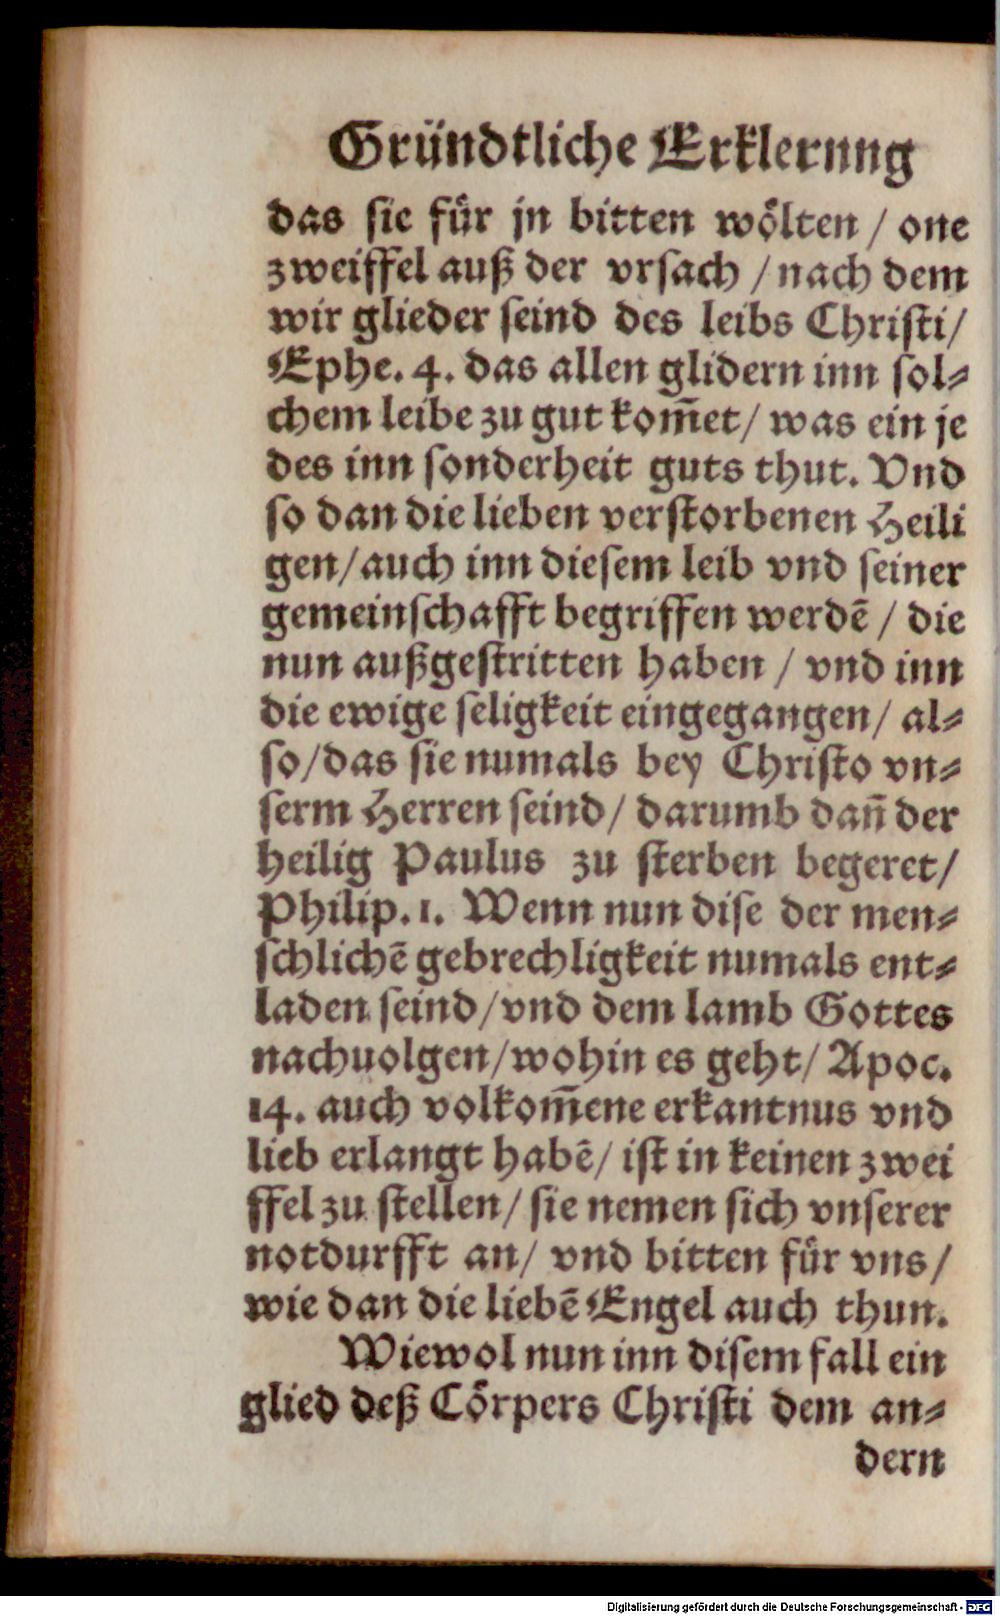 Gründtliche Erklerung
das sie für jn bitten wölten / one
zweiffel auß der vrsach / nach dem
wir glieder seind des leibs Christi/
Ephe. 4. das allen glidern inn sol⸗
chem leibe zu gut kom̄et/ was ein je
des inn sonderheit guts thut. Vnd
so dan die lieben verstorbenen Heili
gen/ auch inn diesem leib vnd seiner
gemeinschafft begriffen werdē / die
nun außgestritten haben / vnd inn
die ewige seligkeit eingegangen/ al⸗
so/ das sie numals bey Christo vn⸗
serm Herren seind/ darumb dan̄ der
heilig Paulus zu sterben begeret/
Philip. 1. Wenn nun dise der men⸗
schlichē gebrechligkeit numals ent⸗
laden seind/ vnd dem lamb Gottes
nachuolgen/ wohin es geht/ Apoc.
14. auch volkom̄ene erkantnus vnd
lieb erlangt habē/ ist in keinen zwei
ffel zu stellen/ sie nemen sich vnserer
notdurfft an/ vnd bitten für vns/
wie dan die liebē Engel auch thun.
Wiewol nun inn disem fall ein
glied deß Cörpers Christi dem an⸗
dern
Digitalisierung gefördert durch die Deutsche Forschungsgemeinschaft - DFG